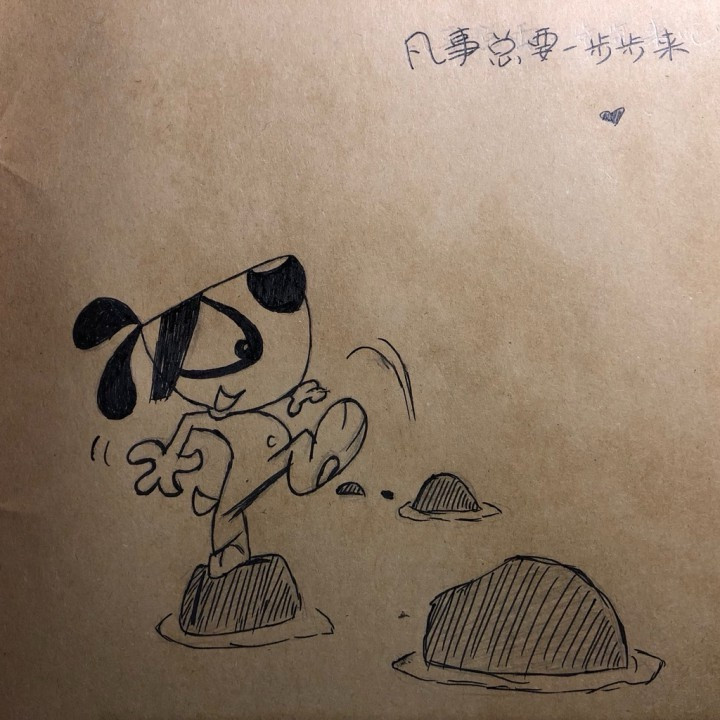 凡事总要一步步来